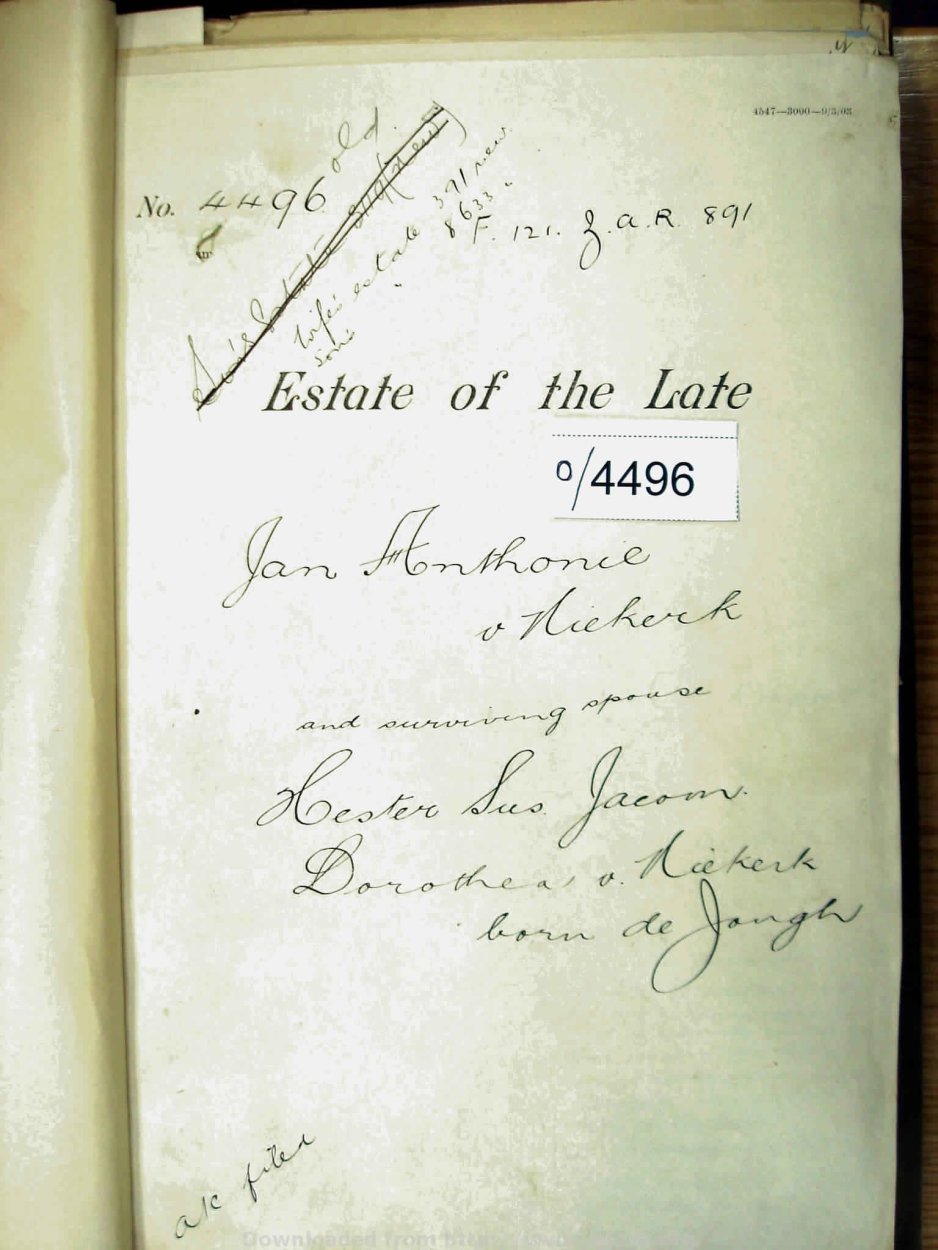 4547—3000—9/3/03
No. 4496 old
Wife's estate 391 new
Son's " 8633 "
F. 121. Z.A.R. 891
Estate of the Late
0/4496
Jan Anthonie
v Niekerk
and surviving spouse
Hester Sus. Jacom.
Dorothea v. Niekerk
born de Jongh
a/c filed
Downloaded from